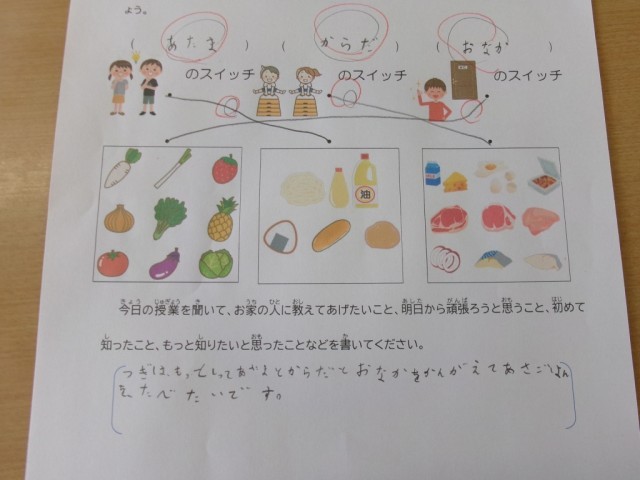 よう。
( あたま ) ( からだ ) ( おなか )
のスイッチ のスイッチ のスイッチ
油
今日の授業を聞いて、お家の人に教えてあげたいこと、明日から頑張ろうと思うこと、初めて
知ったこと、もっと知りたいと思ったことなどを書いてください。
つぎは、もっとしってあたまとからだとおなかをかんがえてあさごはん
をたべたいです。